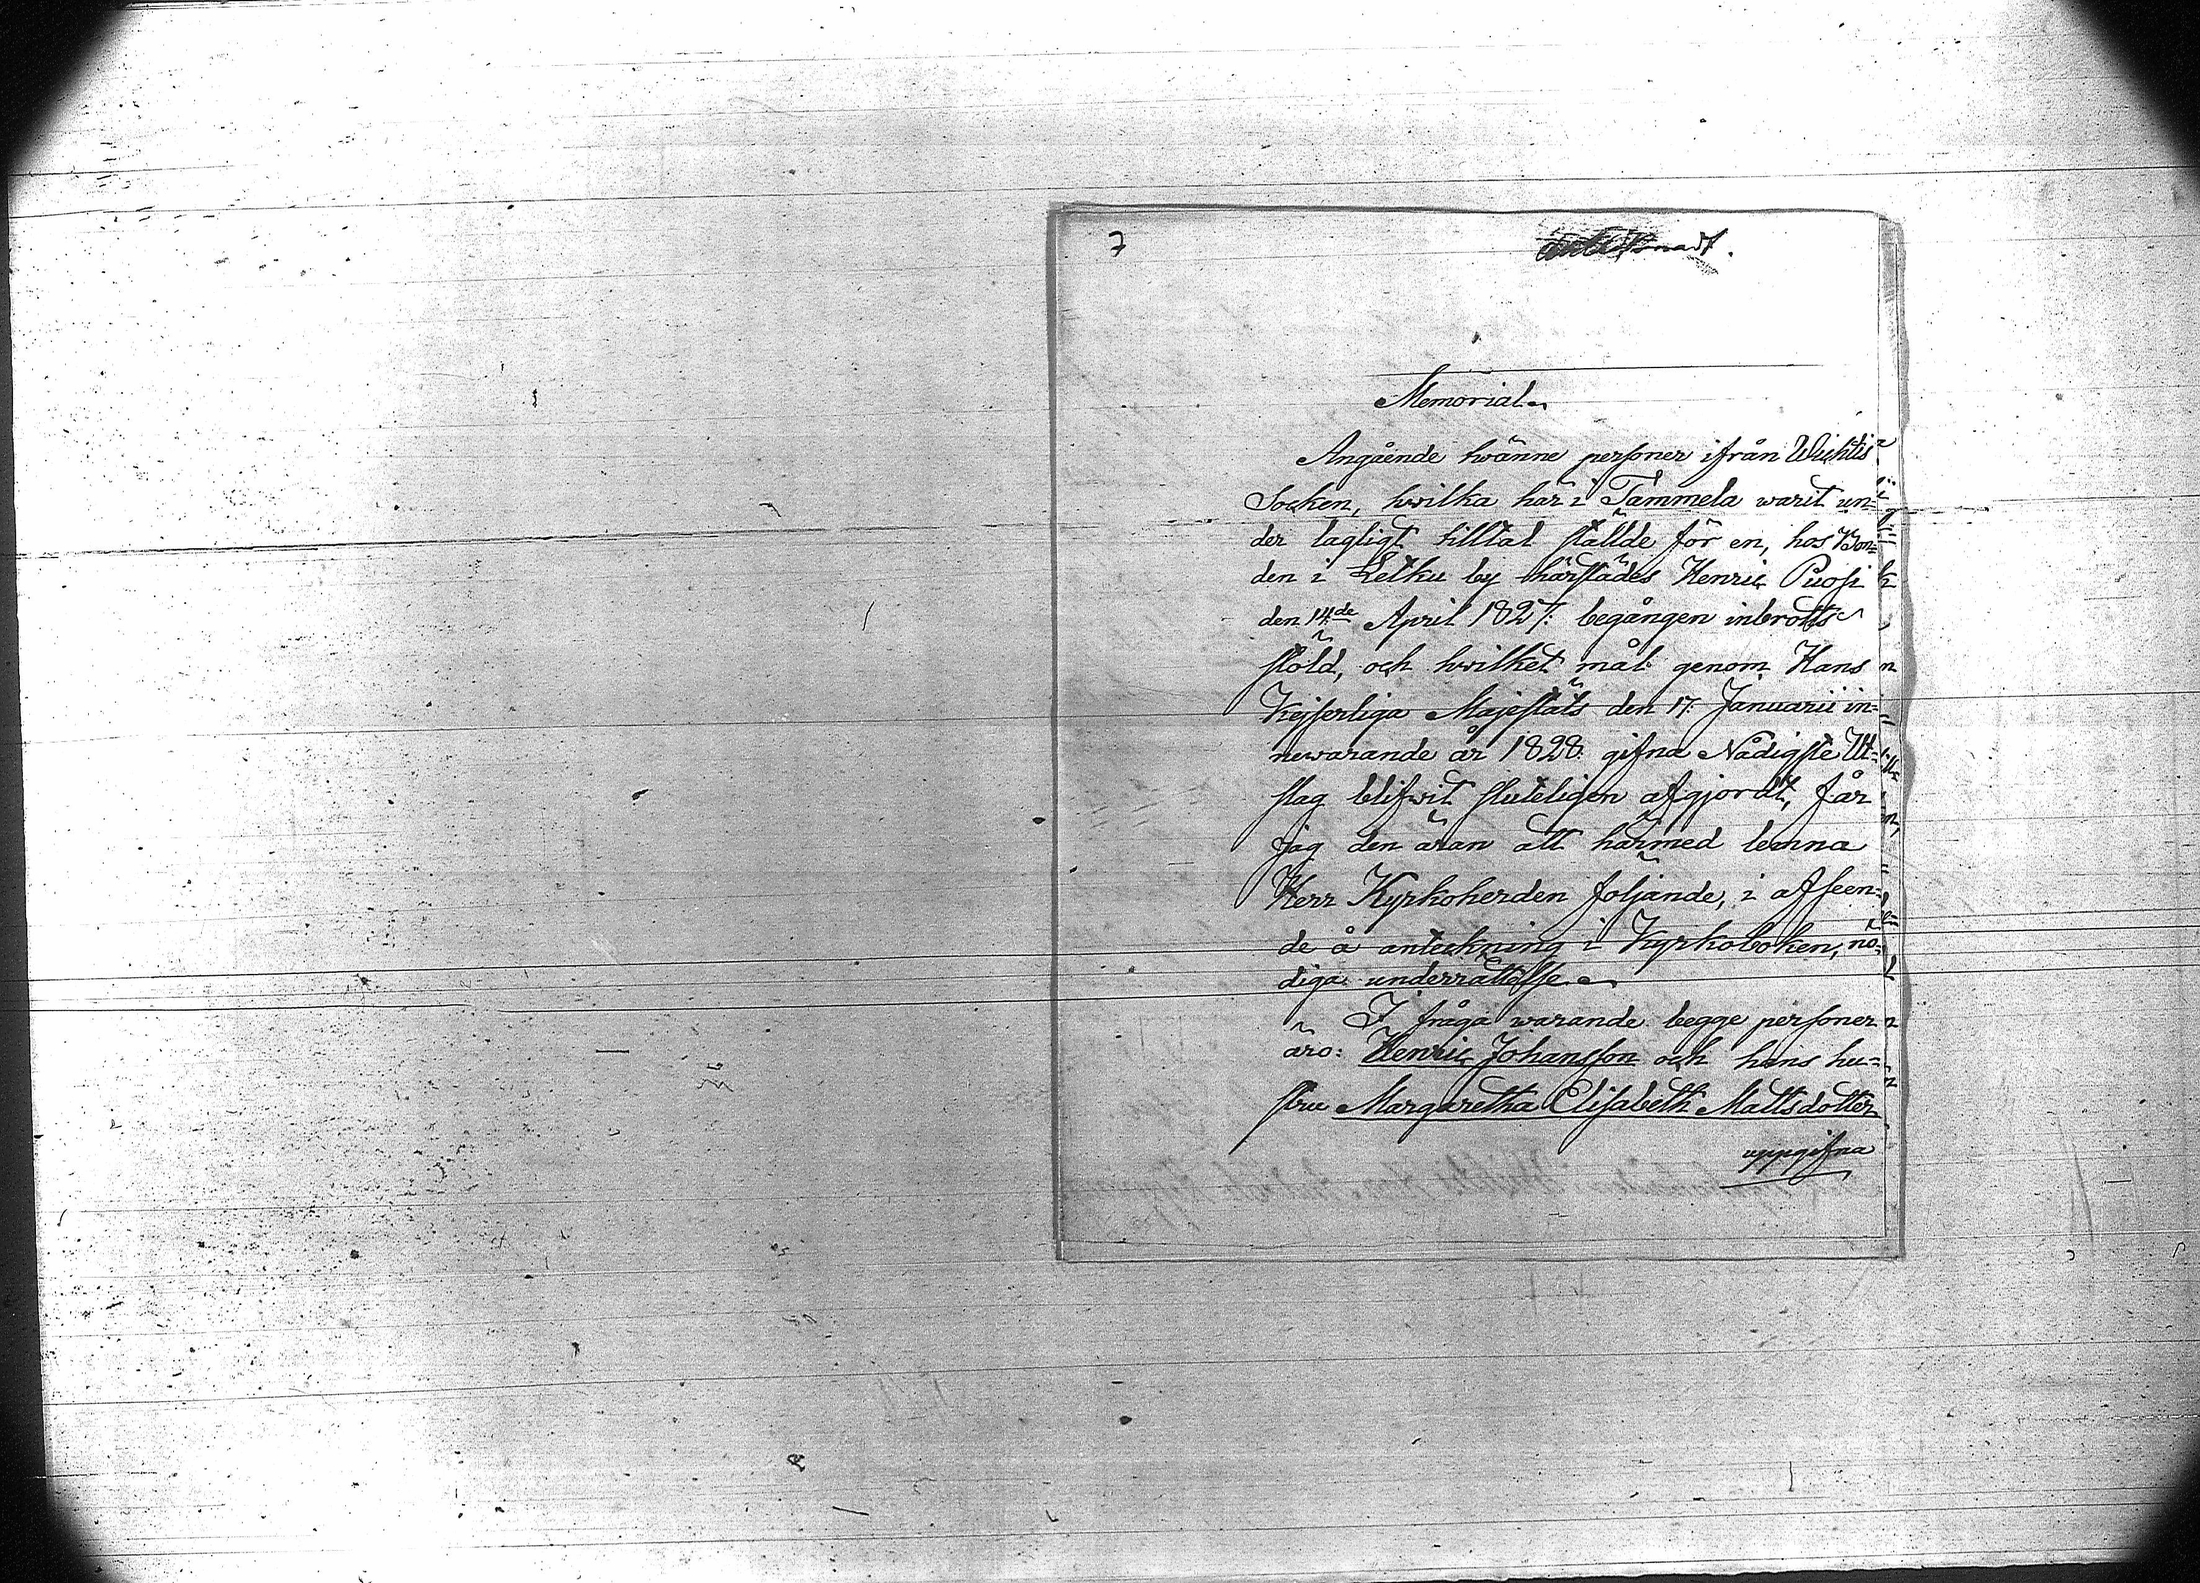 7
Memorial.
Angående twänne personer ifrån Wichtis
Socken, hwilka här i Tammela warit un=
der lagligt tilltal ställde för en, hos Bon=
den i Letku by härstädes Henric Puosi
den 14de April 1827. begången inbrotts
stöld, och hwilket mål genom Hans
Kejserliga Majestäts den 17. Januarii in=
newarande år 1828. gifna Nådigste Ut=
slag blifwit sluteligen afgjordt, får
jag den äran att härmed lemna
Herr Kyrkoherden följande, i afseen=
de å anteckning i Kyrkoboken, nö=
diga underrättelse.
I fråga warande begge personer
äro: Henric Johansson och hans hu=
stru Margaretha Elisabeth Mattsdotter
uppgifna